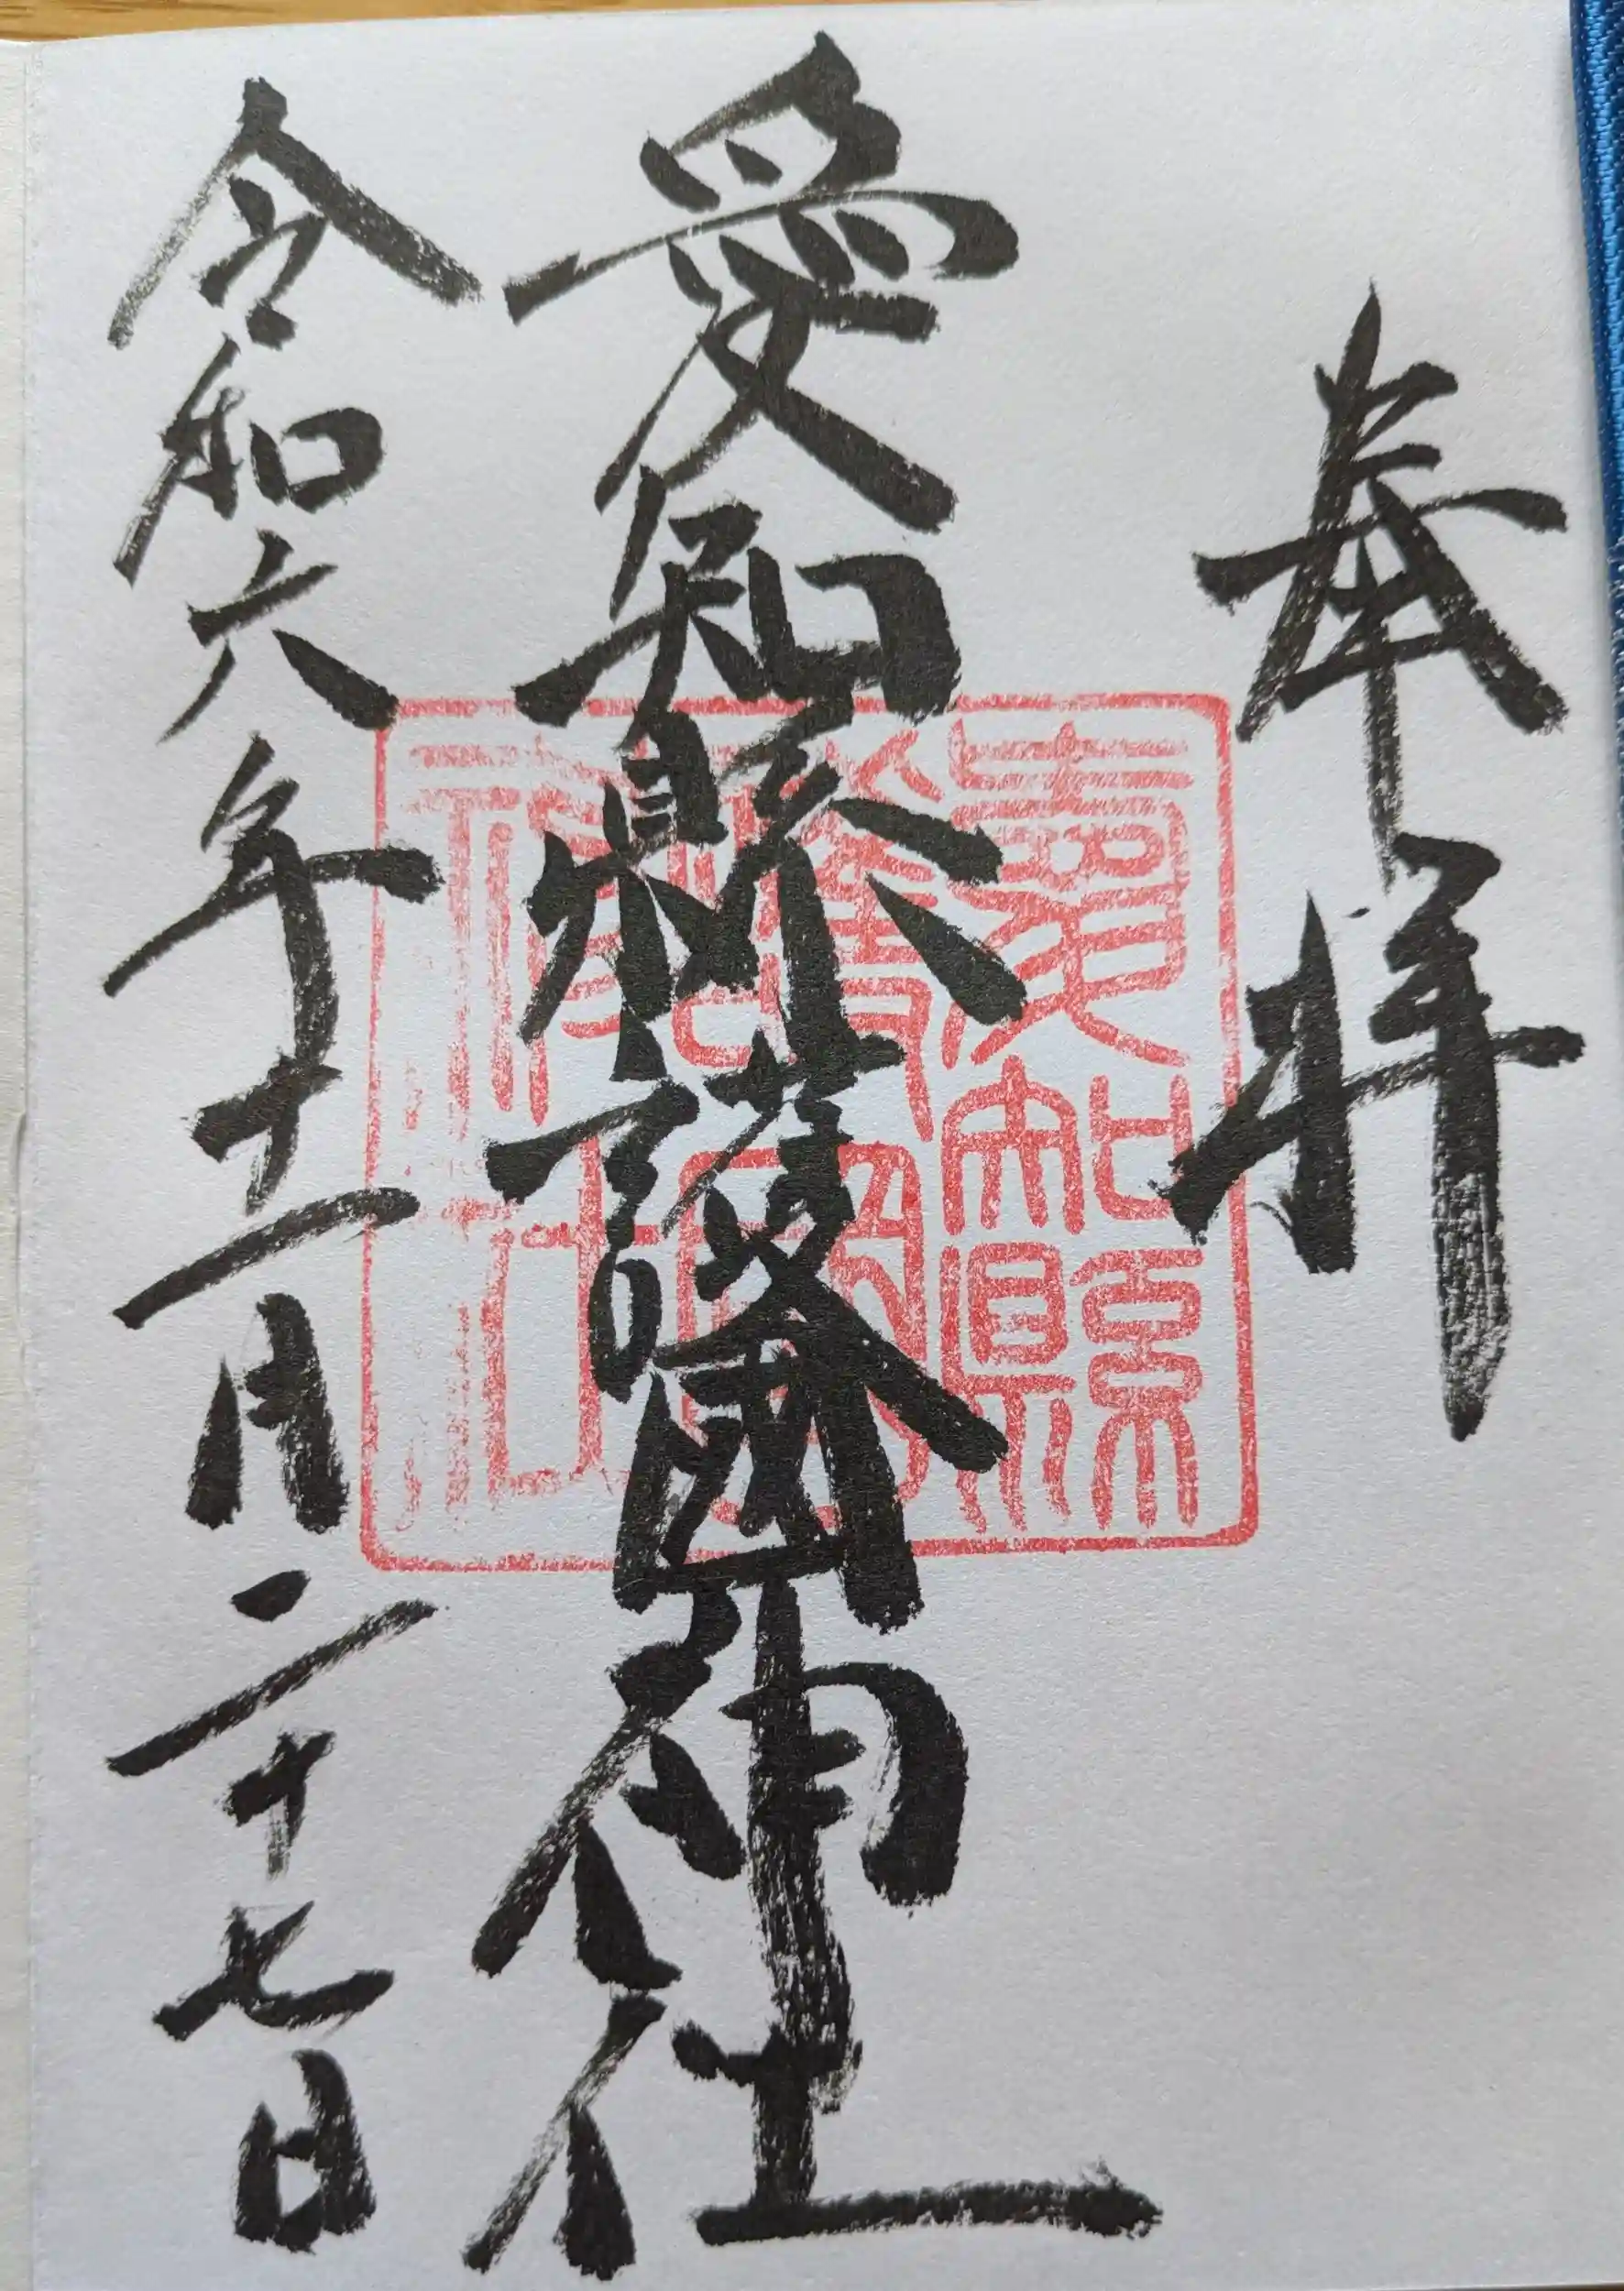 奉拝
愛知縣護國神社
愛知縣護國神社
令和六年十一月二十七日